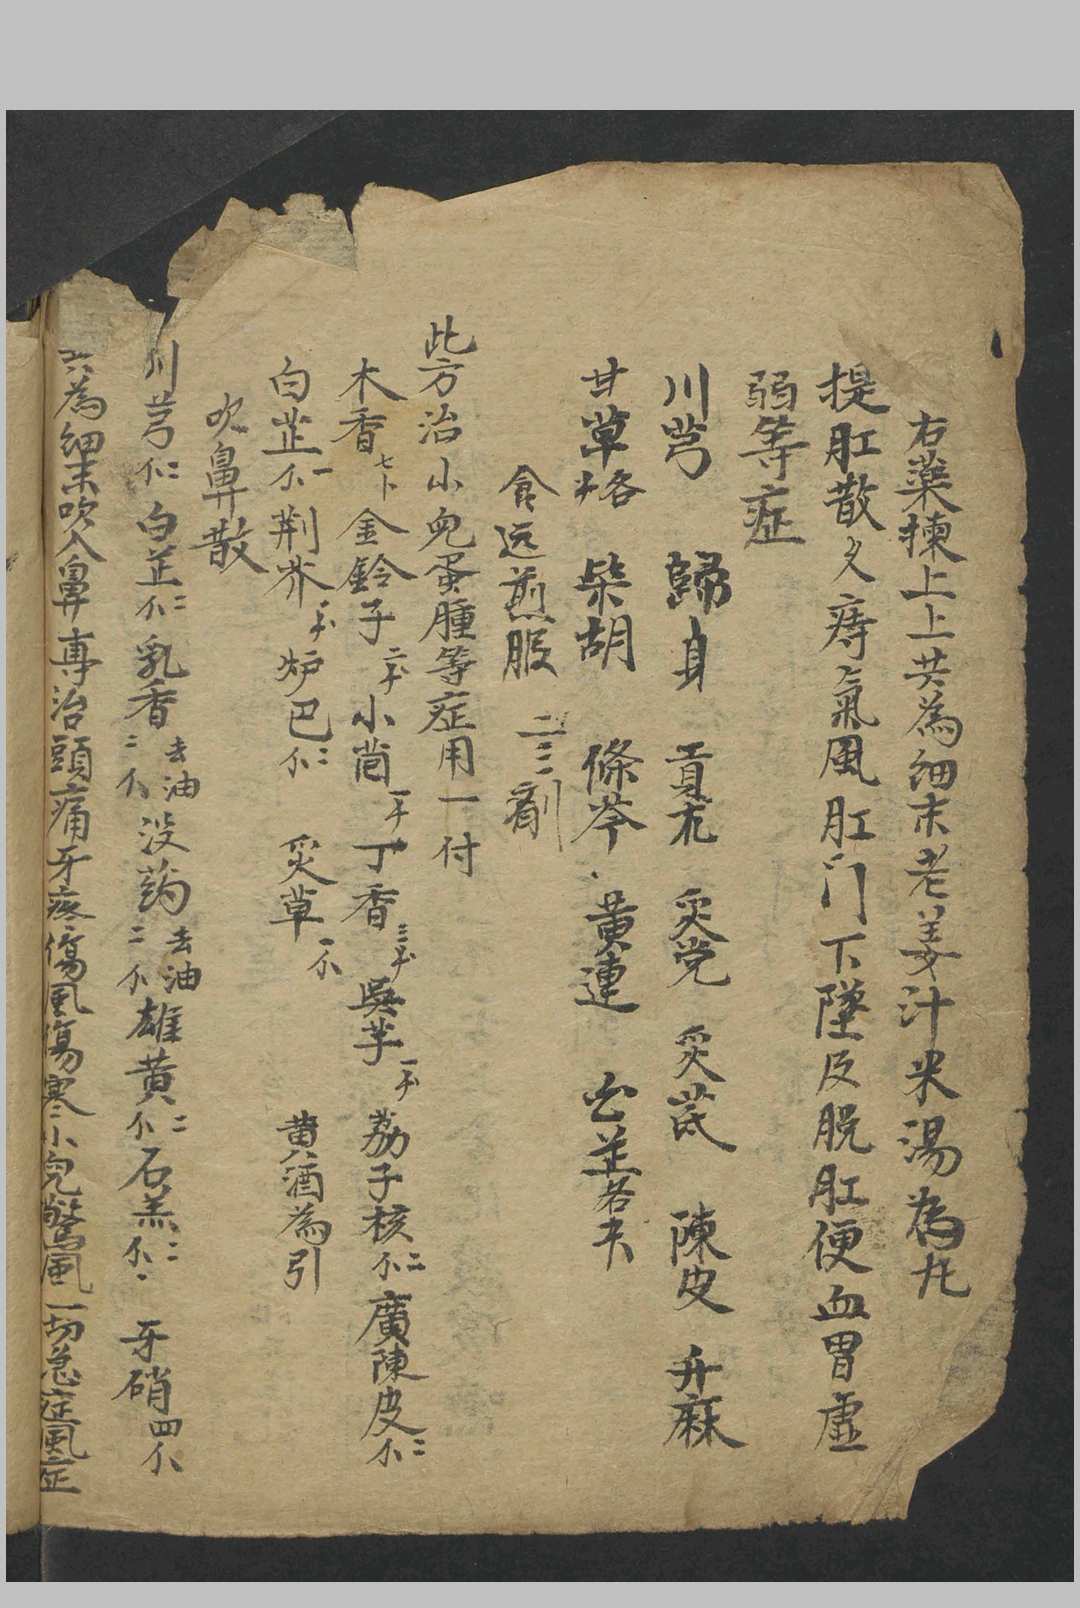 右藥揀上上共為細末老姜汁米湯為丸
提肛散 义痔氣風肛門下墜及脱肛便血胃虛
弱等症
川芎 歸身 貢朮 炙党 炙芪 陳皮 升麻
甘草 柴胡 條芩 黃連 白芷各
食远煎服 二三剤
此方治小兒蛋腫等症用一付
木香 金鈴子 小茴 丁香 吳芋 荔子核 廣陳皮
白芷 荆芥 炉巴 炙草 黄酒為引
吹鼻散
川芎 白芷 乳香去油 没药去油 雄黄 石羔 牙硝四
六為細末吹入鼻專治頭痛牙疼傷風傷寒小兒驚風一切急症風症